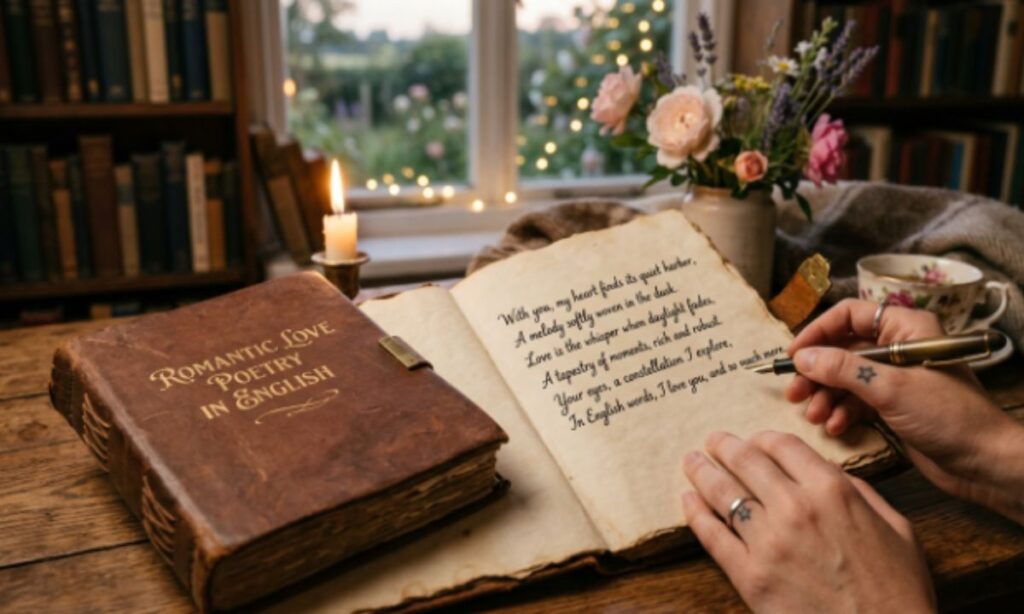 ROMANTIC LOVE
POETRY
IN ENGLISH
With you, my heart finds its quiet harbor,
A melody softly woven in the dusk.
Love is the whisper when daylight fades,
A tapestry of moments, rich and robust.
Your eyes, a constellation I explore,
In English words, I love you, and so much more.